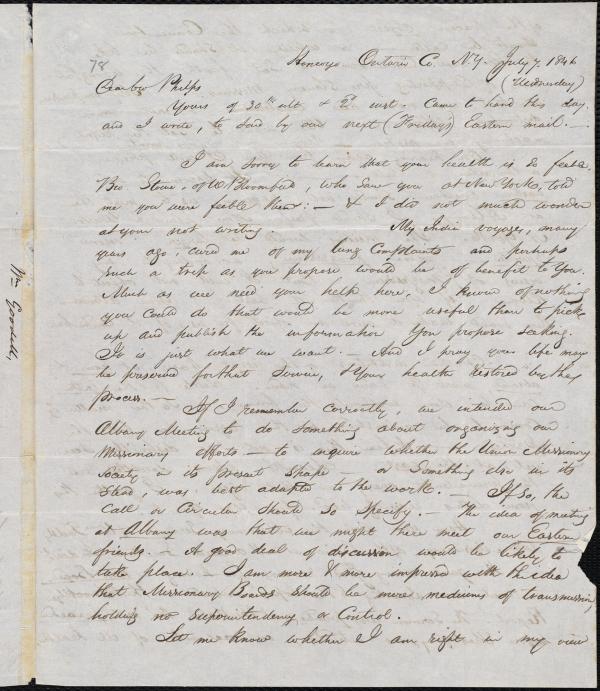 78
Honeoye Ontario Co. N.Y. July 7, 1846
(Wednesday)
Dear bro Phelps
Yours of 30th ult. & 2d inst. Came to hand this day.
and I write, to send by our next (Friday's) Eastern mail. —
I am sorry to learn that your health is so feeble.
Bro Stowe, of W Bloomfield, who saw you at New York, told
me you were feeble then: — & I did not much wonder
at your not writing. My India voyage, many
years ago, cured me of my lung Complaints and perhaps
such a trip as you propose would be of benefit to you.
Much as we need your help here, I know of nothing
you could do that would be more useful than to pick
up and publish the information you propose seeking.
It is just what we want. — And I pray your life may
be preserved for that service, & your health restored by the
process. —
If I remember correctly, we intended our
Albany Meeting to do something about organizing our
Missionary efforts — to inquire whether the Union Missionary
Society in its present shape — or something else in its
stead, was best adapted to the work. — If so, the
Call or Circular should so specify. — The idea of meeting
at Albany was that we might there meet our Eastern
friends. — A good deal of discussion would be likely to
take place. — I am more & more impressed with the idea
that Missionary Boards should be mere mediums of transmission,
holding no Superintendency or Control.
Let me know whether I am right in my view
Wm Goodell,